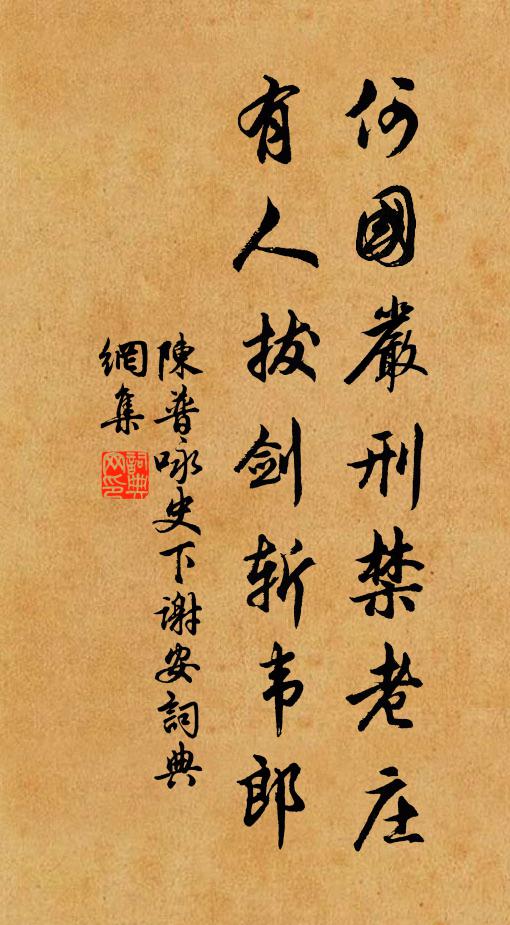 何國嚴刑禁老庄
有人拔剑斩韦郎
陳普咏史下谢安詞典
網集
詞典網印